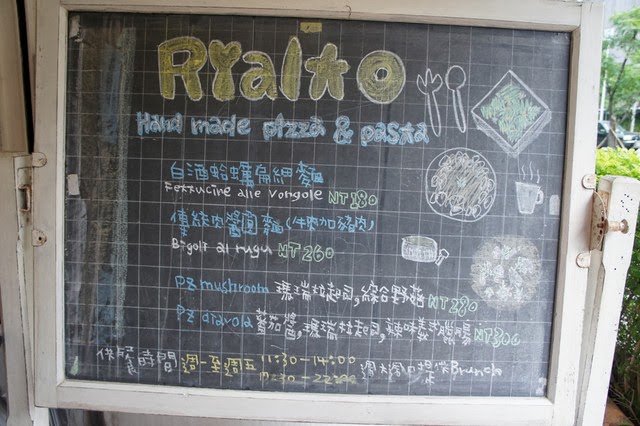 Rialto
Hand made pizza & pasta
白酒蛤蠣扁細麵
Fettucine alle Vongole NT280
傳統肉醬圓麵(牛肉加豬肉)
Bigoli al rugu NT260
PZ mushroom 瑪瑞拉起司,綜合野菇 NT280
PZ diavola 蕃茄醬,瑪瑞拉起司,辣味義式臘腸 NT300
供餐時間 週一至週五 11:30-14:00
17:30-22:00 週六週日提供Brunch